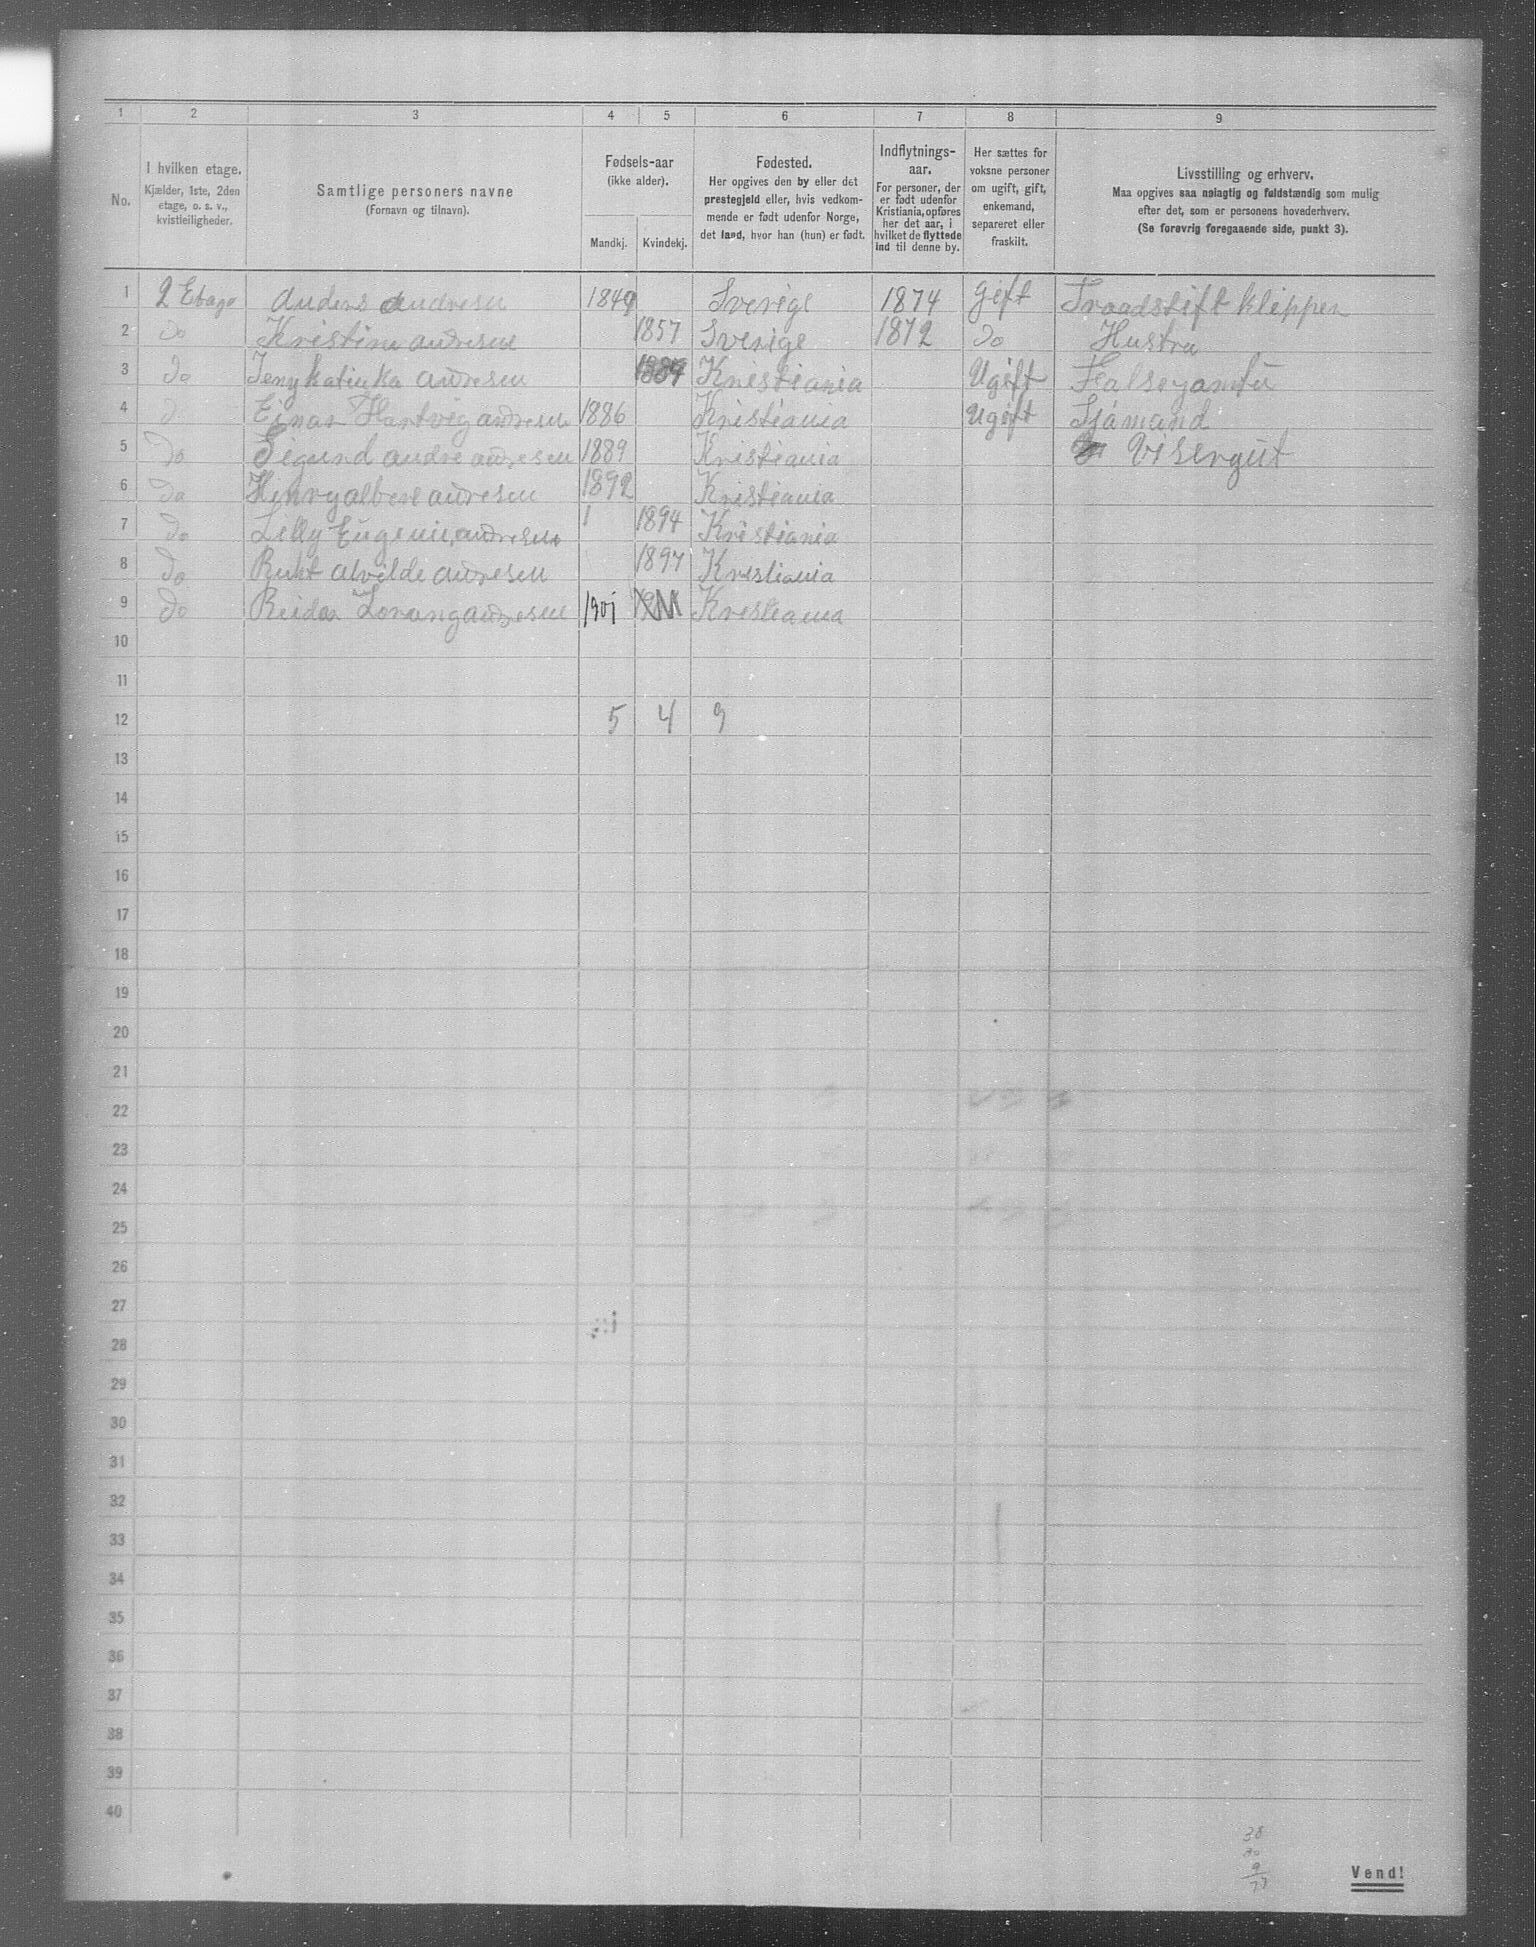 1 2 3 4 5 6 7 8 9
No.
I hvilken etage.
Kjælder, 1ste, 2den
etage, o. s. v.,
kvistleiligheder.
Samtlige personers navne
(Fornavn og tilnavn).
Fødsels-aar
(ikke alder).
Mandkj. Kvindekj.
Fødested.
Her opgives den by eller det
prestegjeld eller, hvis vedkom-
mende er født udenfor Norge,
det land, hvor han (hun) er født.
Indflytnings-
aar.
For personer, der
er født udenfor
Kristiania, opføres
her det aar, i
hvilket de flyttede
ind til denne by.
Her sættes for
voksne personer
om ugift, gift,
enkemand,
separeret eller
fraskilt.
Livsstilling og erhverv.
Maa opgives saa nøiagtig og fuldstændig som mulig
efter det, som er personens hovederhverv.
(Se forøvrig foregaaende side, punkt 3).
1 2 Etage Anders Andresen 1849 Sverige 1874 Gift Traadstift klipper
2 do Kristine Andresen 1857 Sverige 1872 do Hustru
3 do Jeny Katinka Andresen 1884 Kristiania Ugift
4 do Ejnar Hartvig Andresen 1886 Kristiania Ugift Sjømand
5 do Sigurd Andre Andresen 1889 Kristiania Visergut
6 do Henry Albert Andresen 1892 Kristiania
7 do Lelly Eugenie Andresen 1894 Kristiania
8 do Rut Alvilde Andresen 1897 Kristiania
9 do Reidar Lorang Andresen 1901 Kristiania
10
11
12 5 4 9
13
14
15
16
17
18
19
20
21
22
23
24
25
26
27
28
29
30
31
32
33
34
35
36
37
38
39
40
38
30
9
77
Vend!